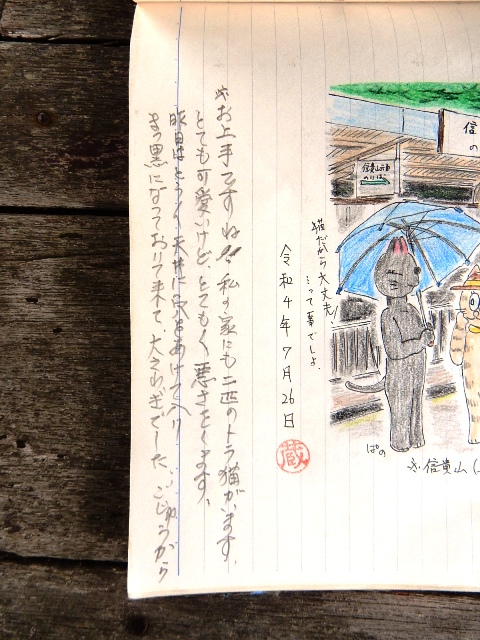 お上手ですね!!私の家にも二匹のトラ猫がいます。
とても可愛いけど、とてもよく悪さをします。
昨日はとうとう天井に穴をあけて入り
まっ黒になっており て来て、大さわぎでした。
令和4年7月26日
蔵
猫だから大丈夫!
って事でしょ
信
の
信貴山
のりば
ぱの
信貴山